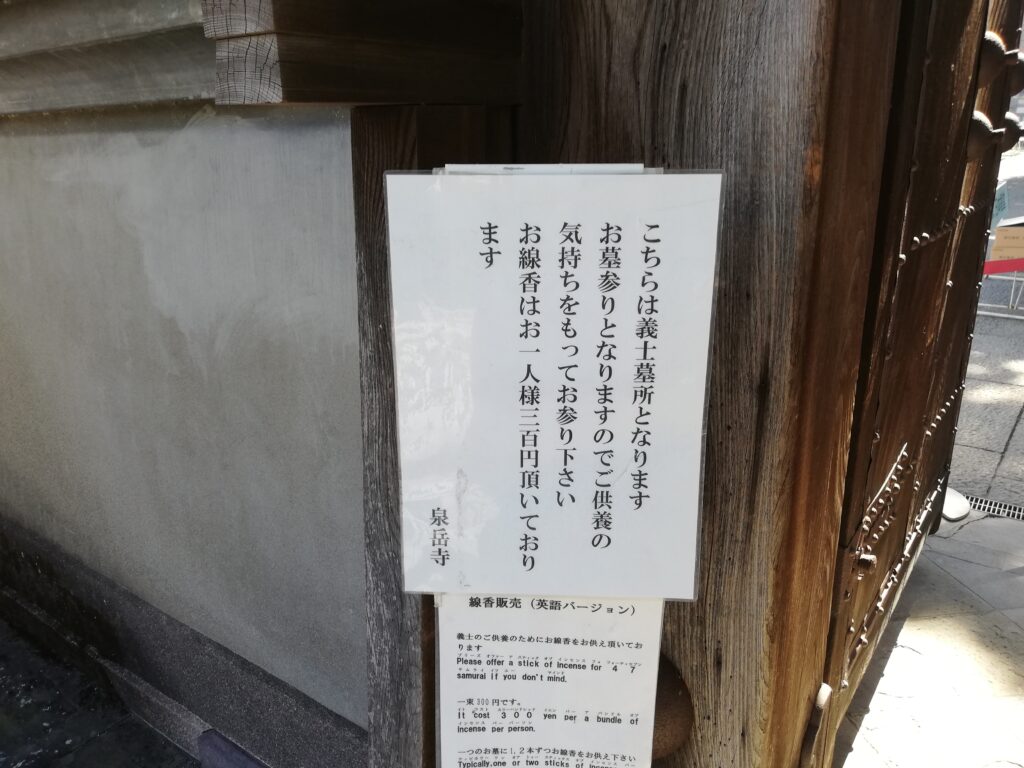 こちらは義士墓所となります
お墓参りとなりますのでご供養の
気持ちをもってお参り下さい
お線香はお一人様三百円頂いており
ます
泉岳寺
線香販売（英語バージョン）
義士のご供養のためにお線香をお供え頂いてお
ります
Please offer a stick of incense for 47
samurai if you don't mind.
一束300円です。
It cost 300 yen per a bundle of
incense per person.
一つのお墓に1,2本ずつお線香をお供え下さい
Typically,one or two sticks of